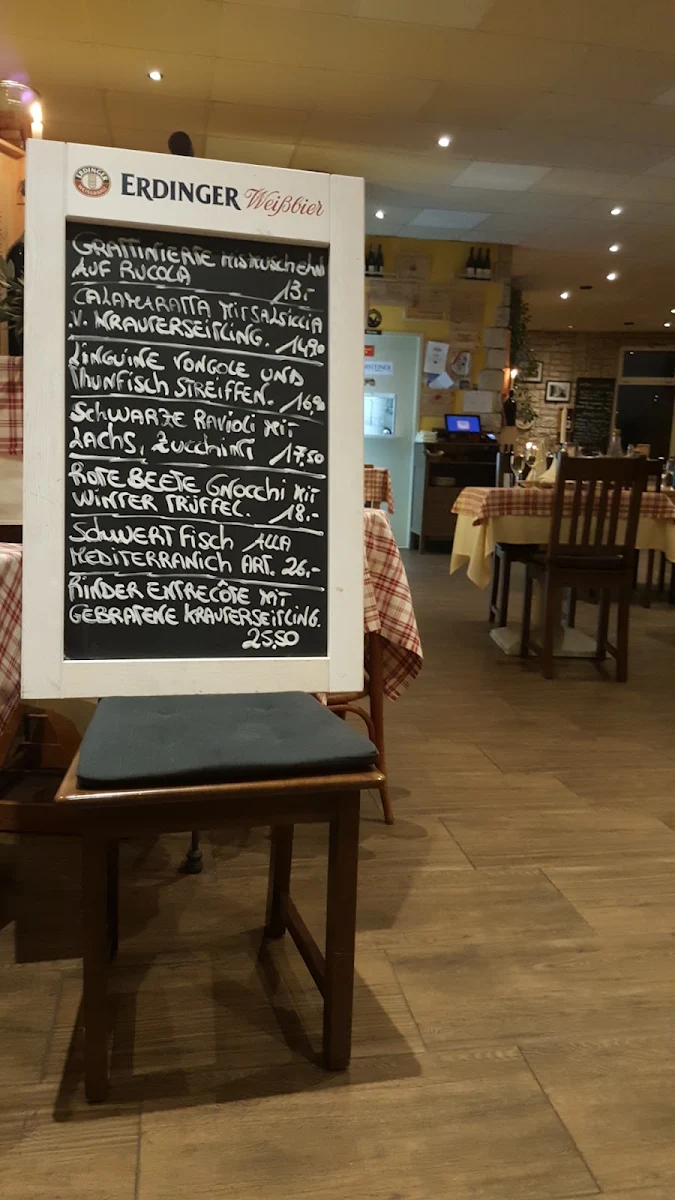 ERDINGER Weißbier
GRATTINIERTE MISMUSCHEHN
AUF RUCOLA 13.-
CALAMARATTA MIT SALSICCIA
V. KRAUTERSEITLING. 14,90
LINGUINE VONGOLE UND
THUNFISCH STREIFFEN. 16,90
SCHWARZE RAVIOLI MIT
LACHS, ZUCCHINI 17,50
ROTE BEETE GNOCCHI MIT
WINTER TRÜFFEL. 18.-
SCHWERT FISCH ALLA
MEDITERRANICH ART. 26.-
RINDER ENTRECÔTE MIT
GEBRATENE KRAUTERSEITLING.
25,50